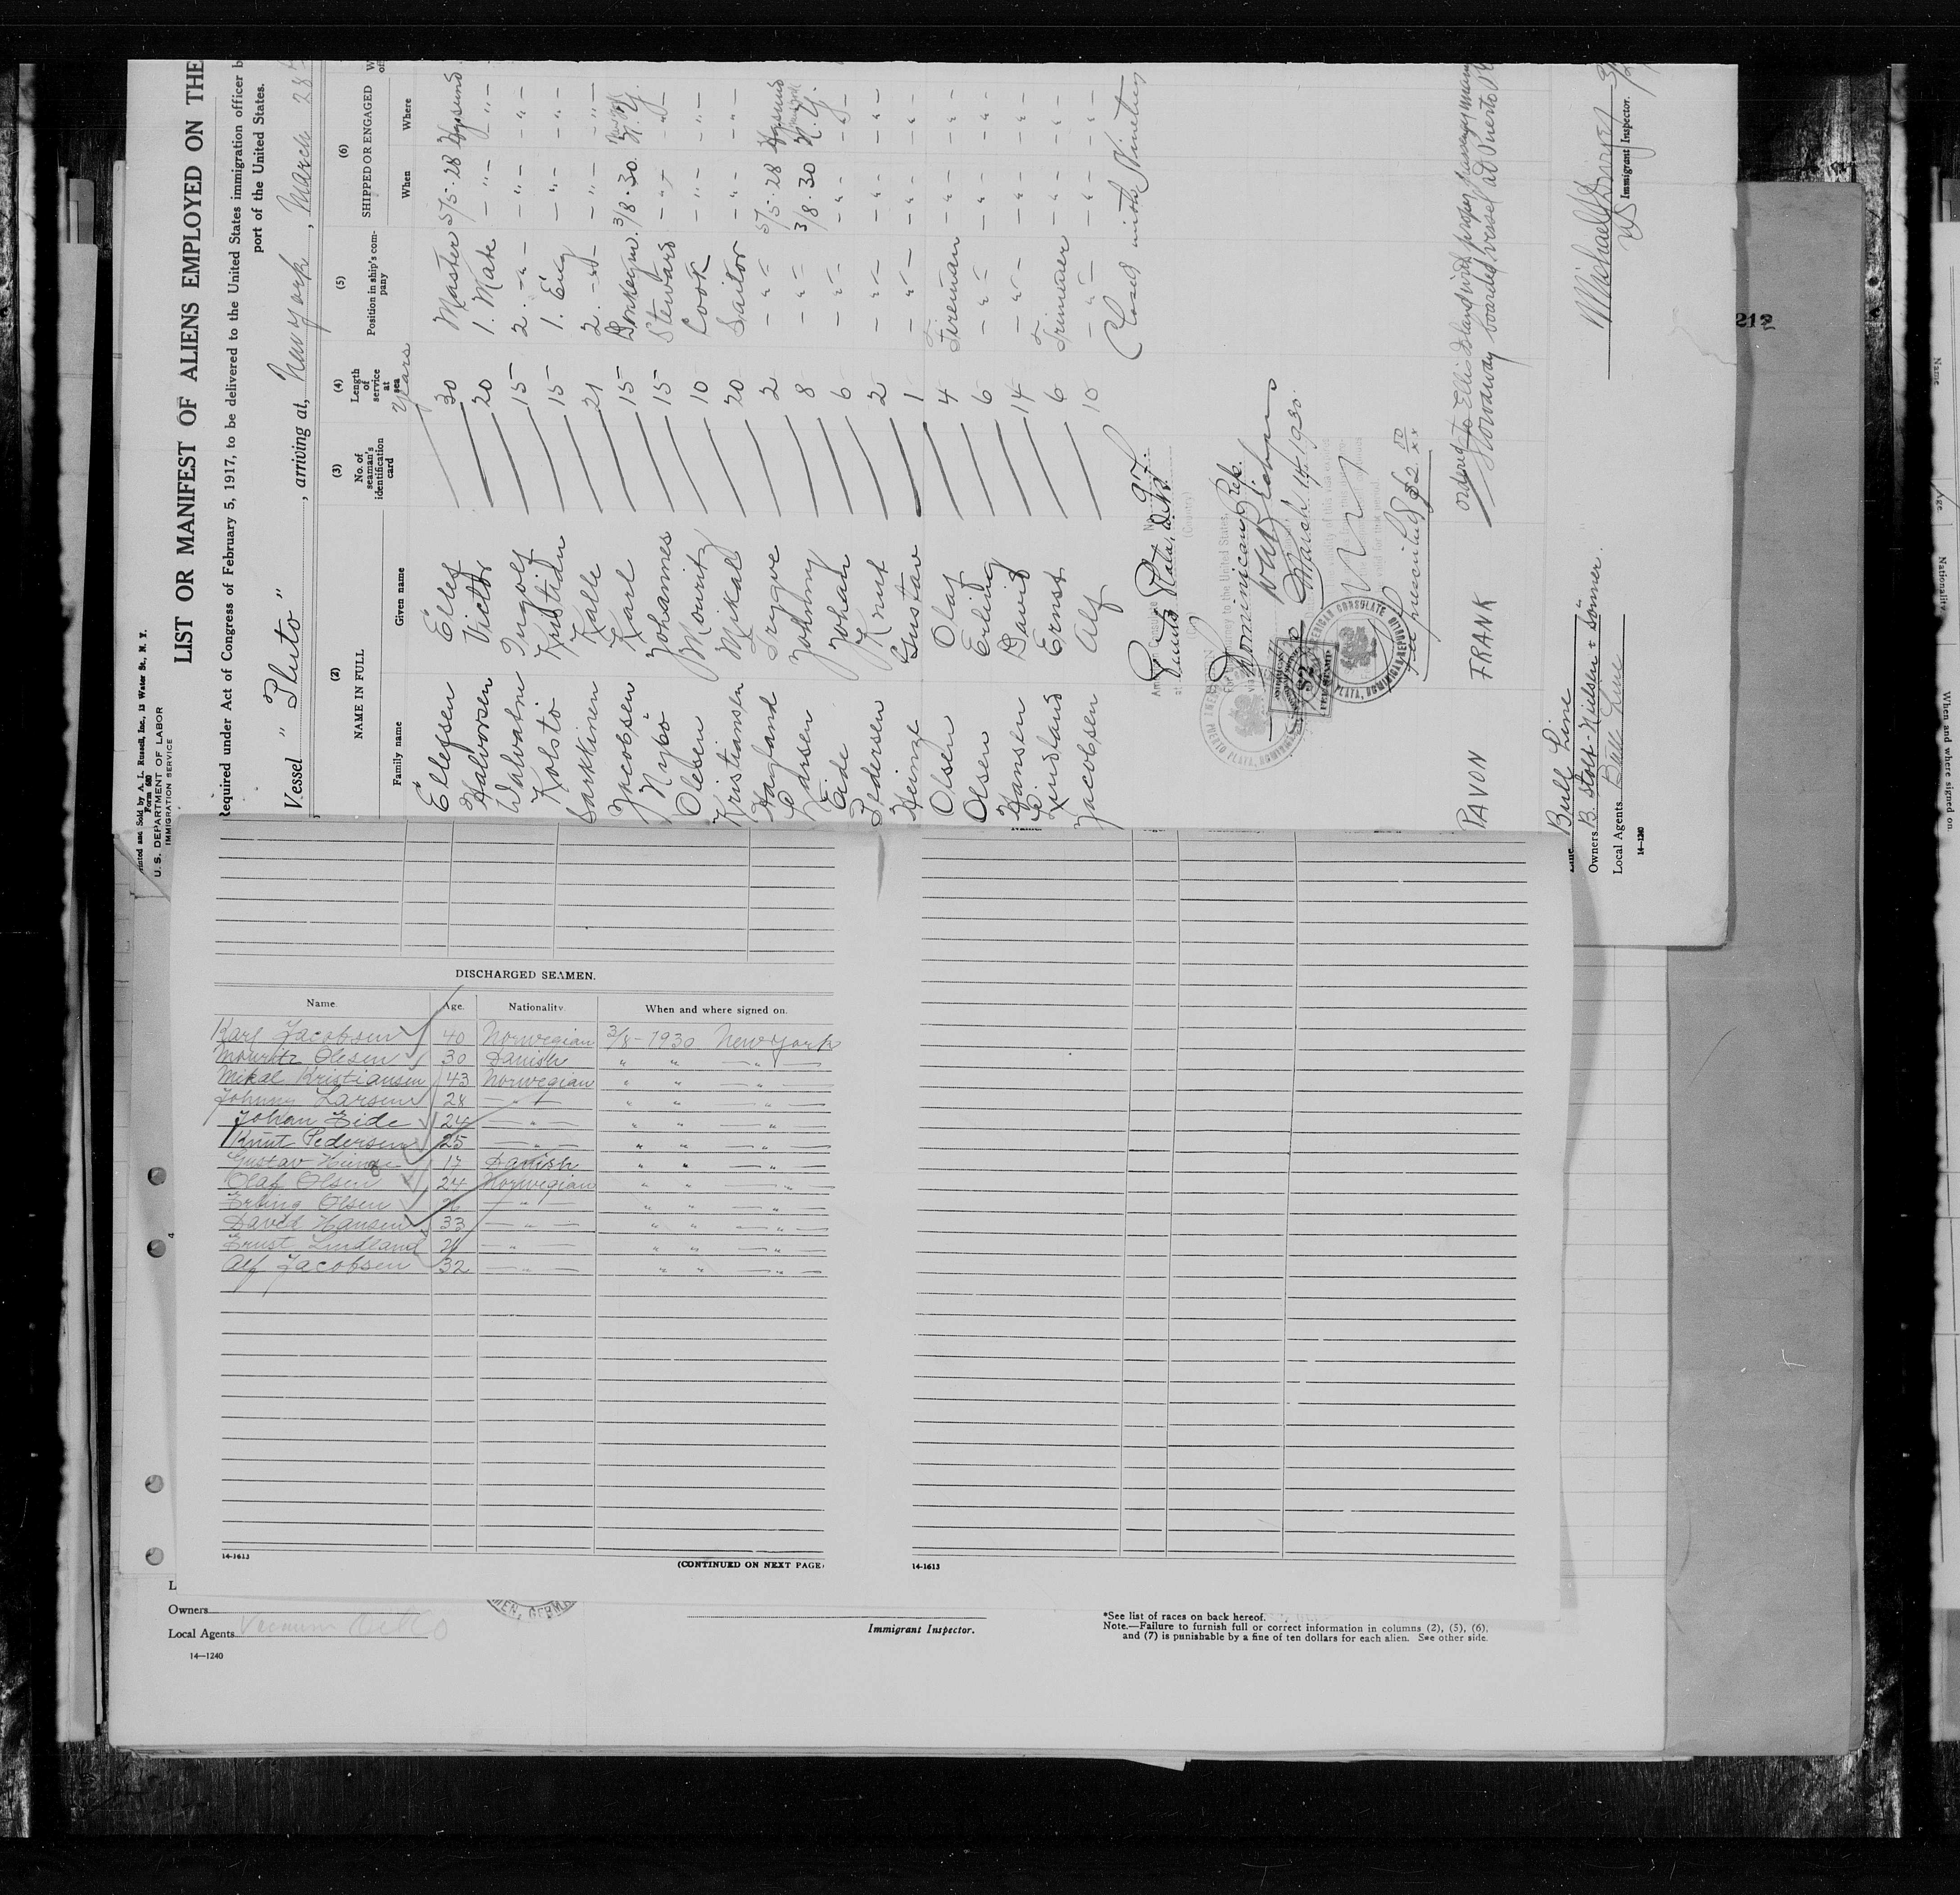 Printed and Sold by A. L. Russell, Inc., 13 Water St., N. Y.
Form 680
U. S. DEPARTMENT OF LABOR
IMMIGRATION SERVICE
LIST OR MANIFEST OF ALIENS EMPLOYED ON THE
Required under Act of Congress of February 5, 1917, to be delivered to the United States immigration officer b
port of the United States.
Vessel "Pluto", arriving at, New york, March 28
(2) (3) (4) (5) (6)
NAME IN FULL No. of seaman's identification card Length of service at sea Position in ship's company SHIPPED OR ENGAGED
Family name Given name years When Where
Ellefsen Ellef 30 Master 5/5-28
Halvorsen Victor 20 1. Mate - " - - " -
Ingolf 15 2. - " - - " - - " -
Kolstö Kristian 15 1. Eng - " - - " -
Sarkkinen Kalle 21 2. - " - - " - - " -
Jacobsen Karl 15 3/8-30 N.Y.
Nybö Johannes 15 Steward - " - - " -
Olesen Mouritz 10 Cook - " - - " -
Kristiansen Mikall 20 Sailor - " - - " -
Trygve 2 - " - 5/5-28
Larsen Johnny 8 - " - 3/8-30 N.Y.
Eide Johan 6 - " - - " - - " -
Pedersen Knut 2 - " - - " - - " -
Heinze Gustav 1 - " - - " - - " -
Olsen Olaf 4 Fireman - " - - " -
Olsen Erling 6 - " - - " - - " -
Hansen David 14 - " - - " - - " -
Lindland Ernst 6 Trimmer - " - - " -
Jacobsen Alf 10 - " - - " - - " -
Closed with Nineteen
Puerto Plata, D.R.
Dominican Rep.
March 14, 1930.
PAVON FRANK ordered to Ellis Island with proper passage money
Stowaway boarded vessel at Puerto
Bull Line
Owners B. Stolt-Nielsen & Sönner.
Local Agents Bull Line
Immigrant Inspector.
14-1240
212
DISCHARGED SEAMEN.
Name. Age. Nationality. When and where signed on.
Karl Jacobsen 40 Norwegian 3/8-1930 New york
Mouritz Olesen 30 Danish " " — " —
Mikal Kristiansen 43 Norwegian " " — " —
Johnny Larsen 28 — " — " " — " —
Johan Eide 24 — " — " " — " —
Knut Pedersen 25 — " — " " — " —
Gustav Heinze 17 Danish " " — " —
Olaf Olsen 24 Norwegian " " — " —
Erling Olsen 26 — " — " " — " —
David Hansen 33 — " — " " — " —
Ernst Lindland — " — " " — " —
Alf Jacobsen 32 — " — " " — " —
14-1613
(CONTINUED ON NEXT PAGE)
14-1613
L
Owners
Local Agents
14—1240
Immigrant Inspector.
*See list of races on back hereof.
Note.—Failure to furnish full or correct information in columns (2), (5), (6),
and (7) is punishable by a fine of ten dollars for each alien. See other side.
Name
Age.
Nationality
When and where signed on.